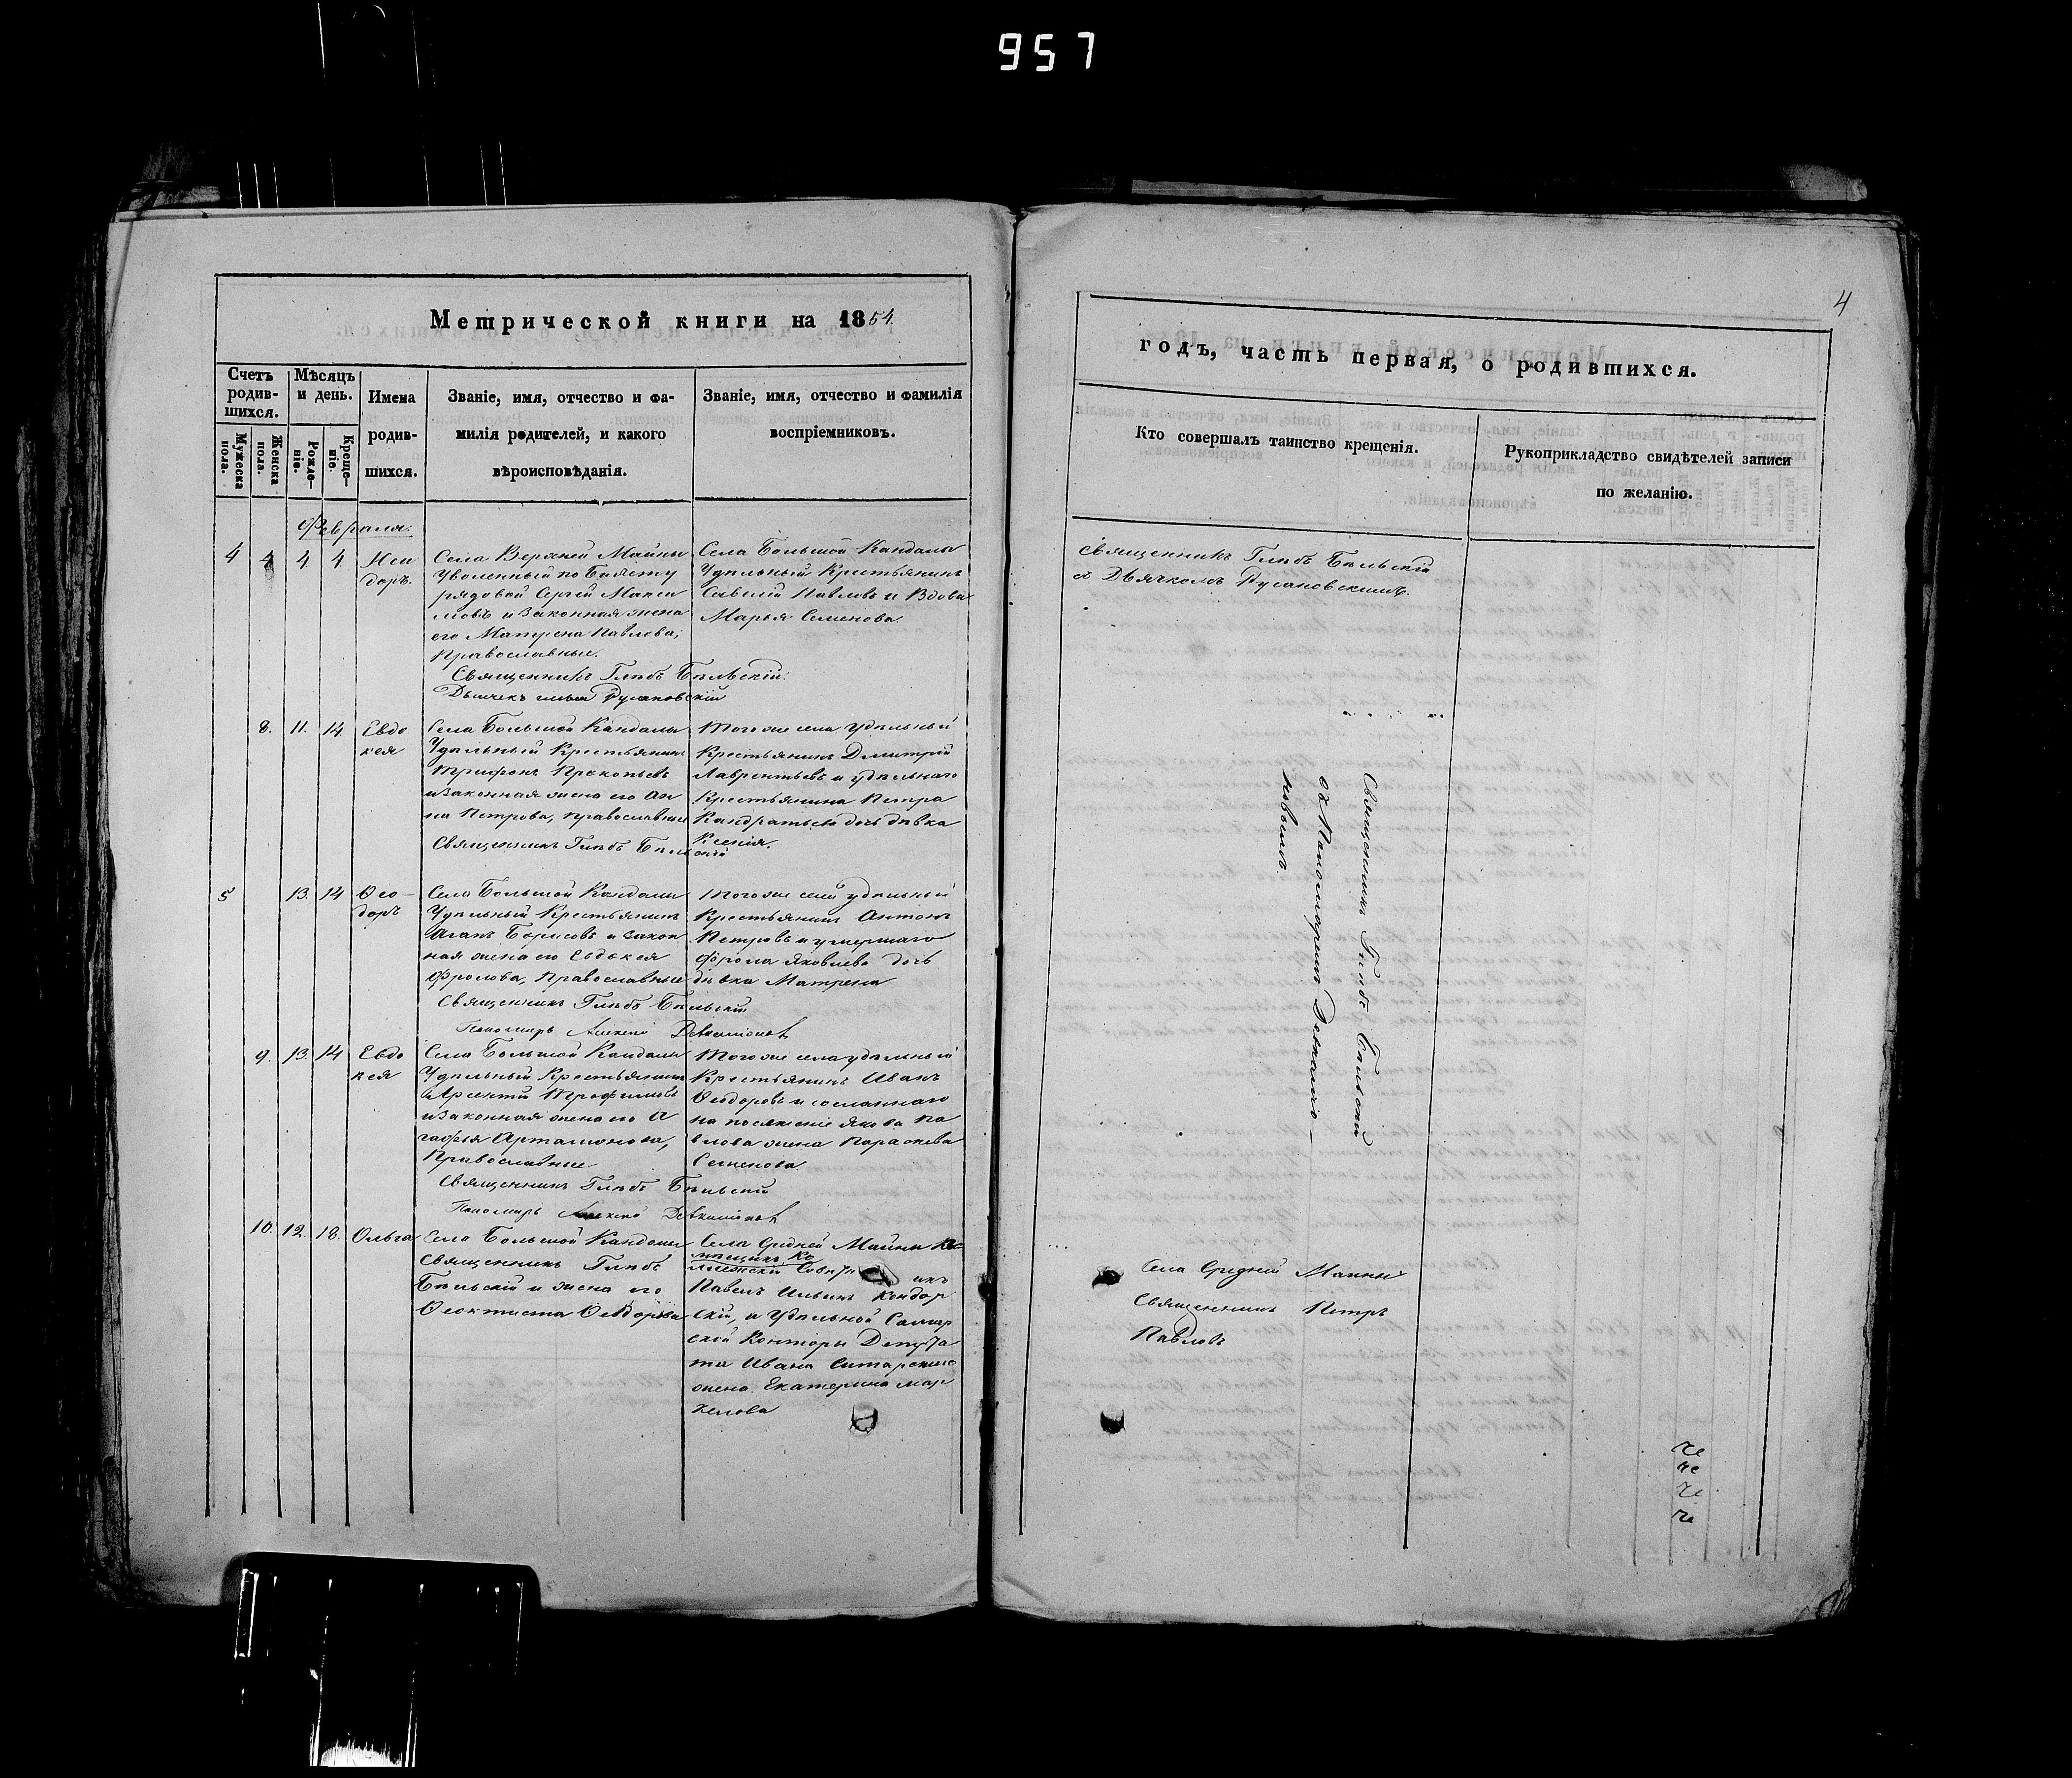 957
Метрической книги на 1854.
Счетъ родив-шихся.
Мѣсяцъ и день.
Имена родив-шихся.
Званіе, имя, отчество и фа-
милія родителей, и какого
вѣроисповѣданія.
Званіе, имя, отчество и фамилія
воспріемниковъ.
Мужеска пола.
Женска пола.
Рожде-ніе.
Креще-ніе.
Февраля.
4 4 4 4
Иси
доръ.
Села Верхней Майны
Уволенный по Билету
рядовой Сергій Макси
мовъ и Законная жена
его Матрена Павлова,
Православные.
Священникъ Глѣбъ Бѣльскій.
Русановскій
Села Большой Кандалы
Удѣльный Крестьянинъ
Савелій Павловъ и Вдова
Марья Семенова.
8. 11. 14
Евдо
кея
Села Большой Кандалы
Удѣльный Крестьянинъ
Трифонъ Прокопьевъ
и Законная жена его Ан
на Петрова, православные
Священникъ Глѣбъ Бѣльскій
Тогоже села Удѣльный
Крестьянинъ Димитрій
Лаврентьевъ и удѣльнаго
Крестьянина Петра
Кандратьева дочь дѣвка
Ксенія.
5 13. 14
Ѳео-
доръ
Села Большой Кандалы
Удѣльный Крестьянинъ
Агапъ Борисовъ и закон
ная жена его Евдокея
Фролова, Православные
Священникъ Глѣбъ Бѣльскій
Пономарь Алексѣй
Тогоже села удѣльный
Крестьянинъ Антонъ
Петровъ и умершаго
Фрола Яковлева дочь
дѣвка Матрена
9. 13. 14
Евдо
кея
Села Большой Кандалы
Удѣльный Крестьянинъ
Арсентій Трофимовъ
и Законная жена его А
гафья Артамонова,
Православные
Священникъ Глѣбъ Бѣльскій
Пономарь Алексѣй
Тогоже села удѣльный
Крестьянинъ Иванъ
Ѳеодоровъ и сосланнаго
на поселеніе Якова Па
влова жена Параскева
Семенова
10. 12. 18.
Ольга
Села Большой Кандалы
Священникъ Глѣбъ
Бѣльскій и жена его
Ѳеоктиста Ѳеодорова
Села Средней Майны
Павелъ Ильинъ Кандор
скій, и Удѣльной Самар
ской Конторы Депута
та Ивана Ситарскаго
жена Екатерина Мар
келова
4
годъ, часть первая, о родившихся.
Кто совершалъ таинство крещенія.
Рукоприкладство свидѣтелей записи
по желанію.
Священникъ Глѣбъ Бѣльскій
съ Дьячкомъ Русановскимъ.
Священникъ Глѣбъ Бѣльскій
съ Пономаремъ
Села Средней Майны
Священникъ Петръ
Павловъ